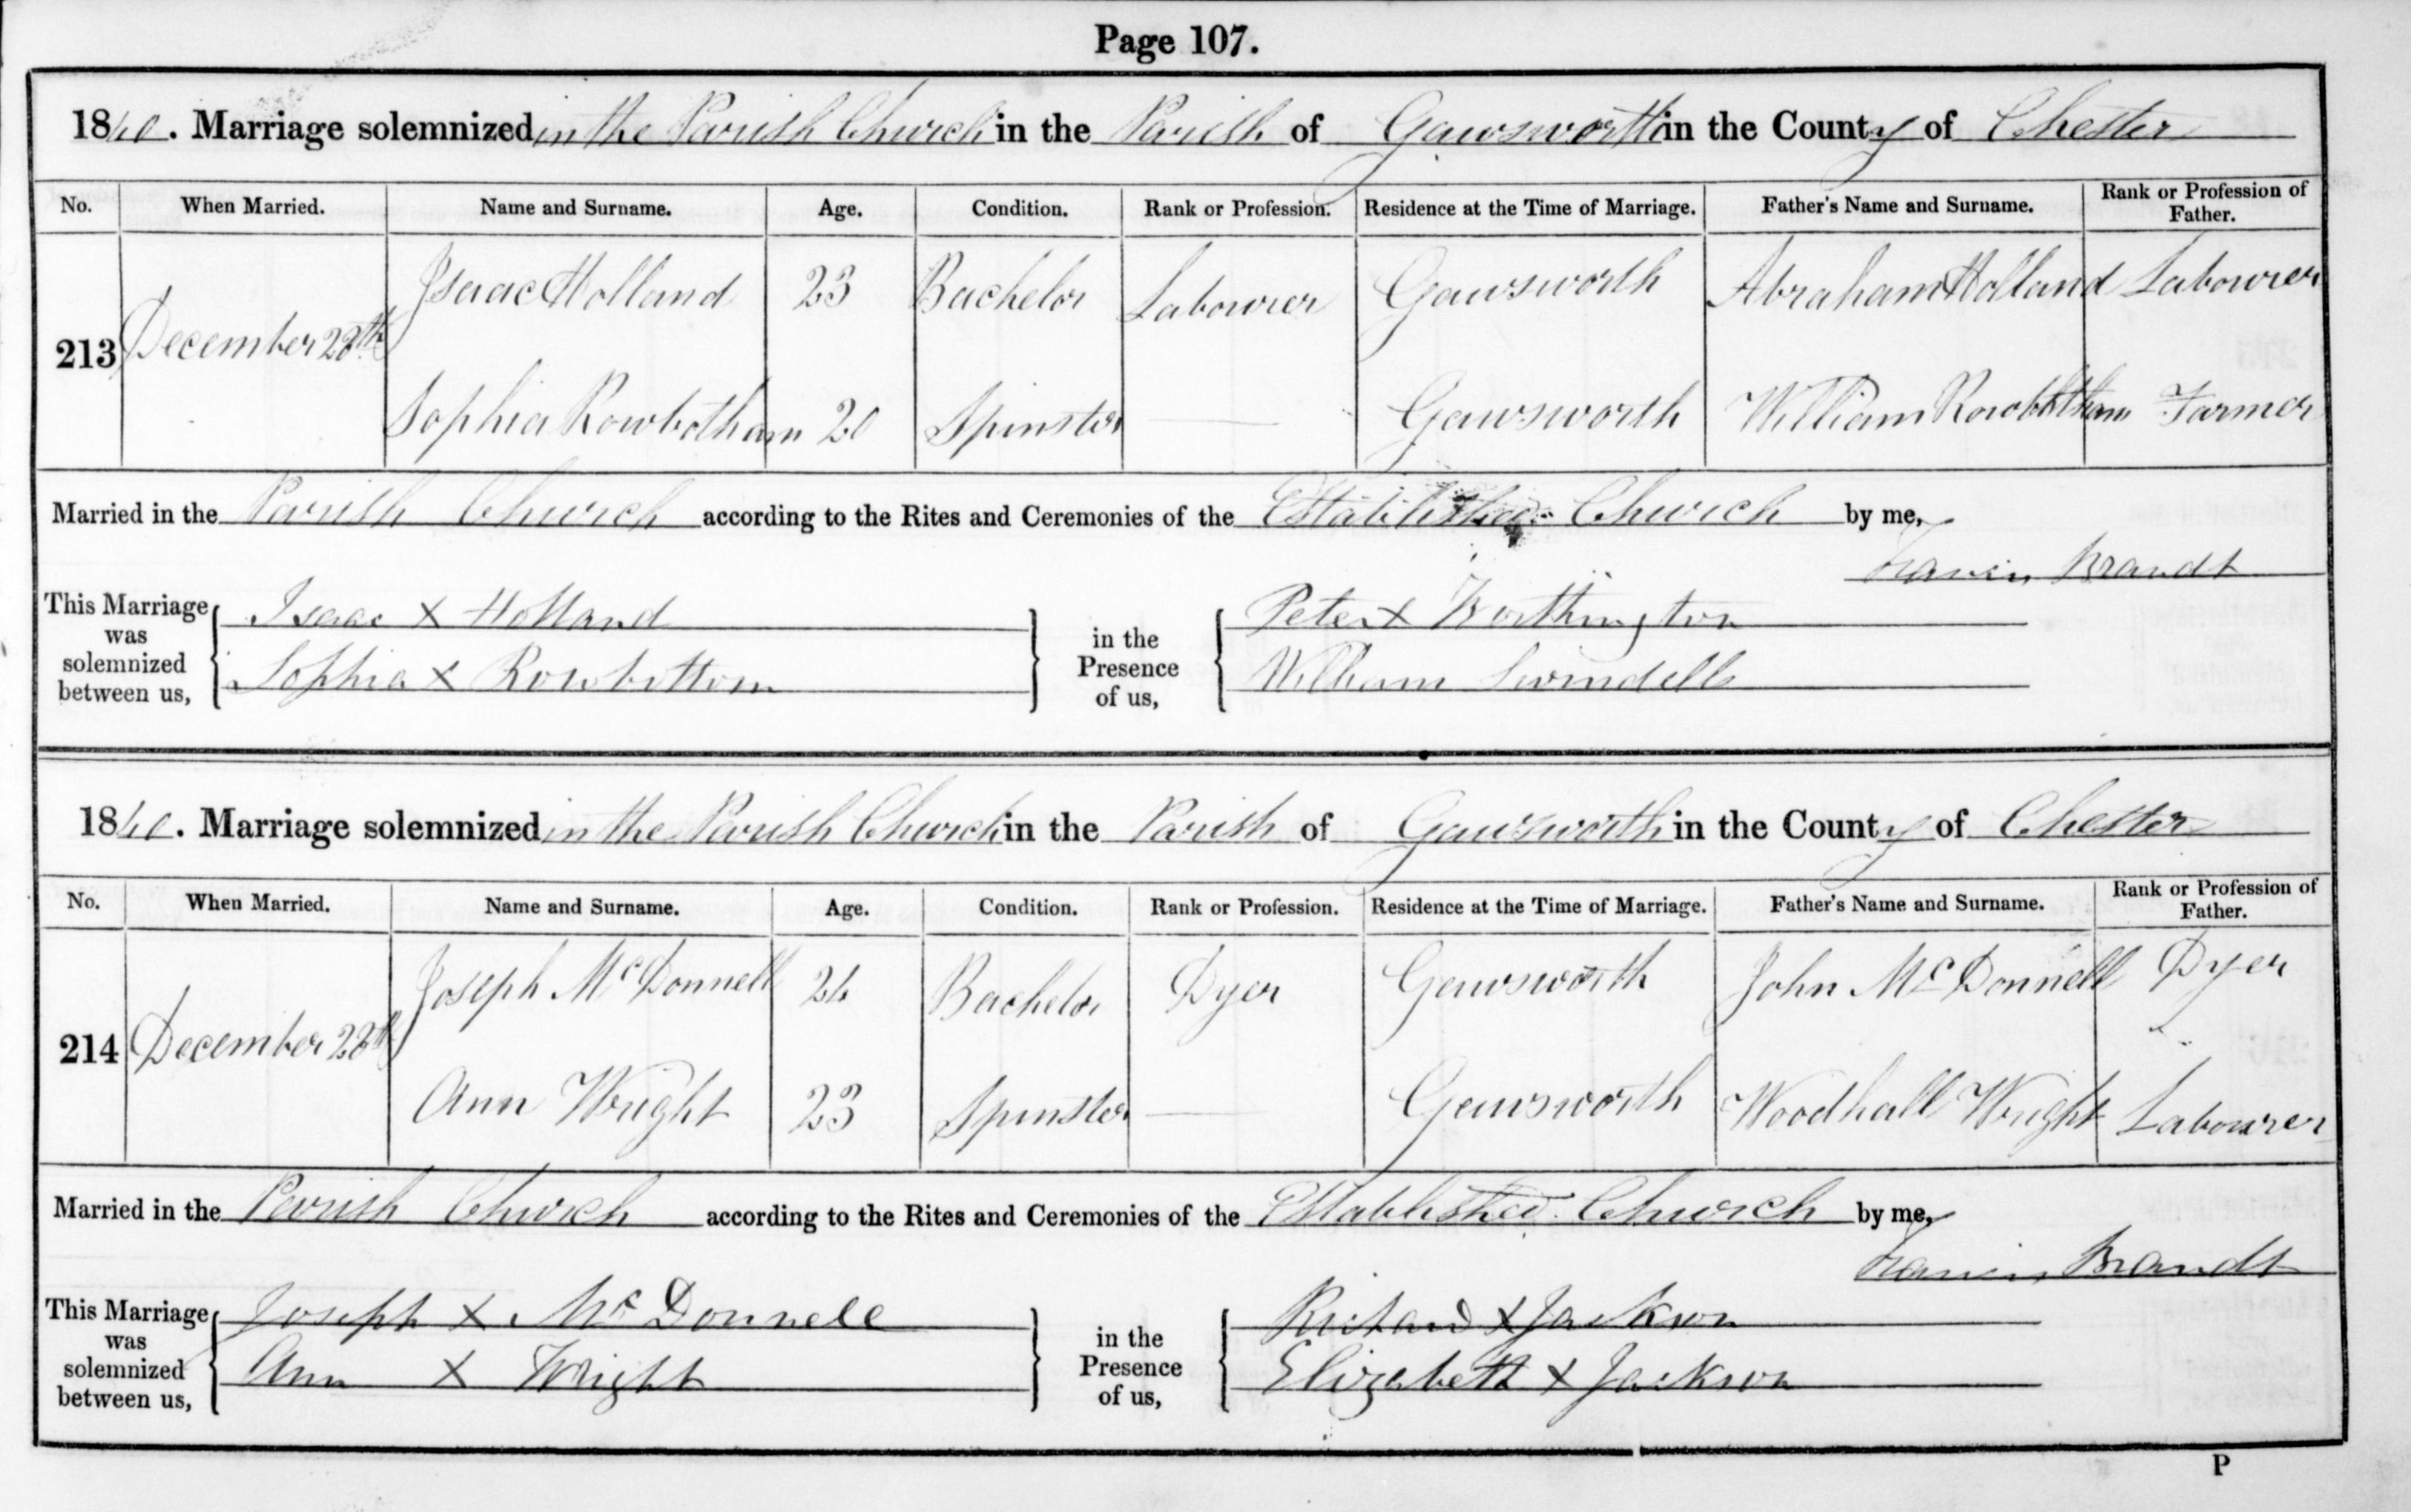 Page 107.
1840. Marriage solemnized in the Parish Church in the Parish of Gawsworth in the County of Chester
No. When Married. Name and Surname. Age. Condition. Rank or Profession. Residence at the Time of Marriage. Father's Name and Surname. Rank or Profession of Father.
Isaac Holland 23 Bachelor Labourer Gawsworth Abraham Holland Labourer
213 December 28th
Sophia Rowbotham 20 Spinster Gawsworth William Rowbotham Farmer
Married in the Parish Church according to the Rites and Ceremonies of the Established Church by me,
Francis Brandt
This Marriage was solemnized between us, Isaac X Holland in the Presence of us, Peter X Worthington
Sophia X Rowbottom William Swindells
1840. Marriage solemnized in the Parish Church in the Parish of Gawsworth in the County of Chester
No. When Married. Name and Surname. Age. Condition. Rank or Profession. Residence at the Time of Marriage. Father's Name and Surname. Rank or Profession of Father.
Joseph McDonnell 24 Bachelor Dyer Gawsworth John McDonnell Dyer
214 December 28th
Ann Wright 23 Spinster Gawsworth Woodhall Wright Labourer
Married in the Parish Church according to the Rites and Ceremonies of the Established Church by me,
Francis Brandt
This Marriage was solemnized between us, Joseph X McDonnell in the Presence of us, Richard X Jackson
Ann X Wright Elizabeth X Jackson
P